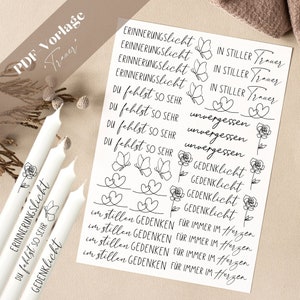 PDF Vorlage
Trauer
ERINNERUNGSlicht
ERINNERUNGSlicht
ERINNERUNGSlicht
ERINNERUNGSlicht
DU fehlst SO SEHR
DU fehlst SO SEHR
DU fehlst SO SEHR
DU fehlst SO SEHR
im stillen GEDENKEN
im stillen GEDENKEN
im stillen GEDENKEN
im stillen GEDENKEN
IN STILLER Trauer
IN STILLER Trauer
IN STILLER Trauer
unvergessen
unvergessen
unvergessen
GEDENKlicht
GEDENKlicht
GEDENKlicht
GEDENKlicht
FÜR IMMER IM Herzen
FÜR IMMER IM Herzen
FÜR IMMER IM Herzen
ERINNERUNGSlicht
DU fehlst SO SEHR
GEDENKlicht